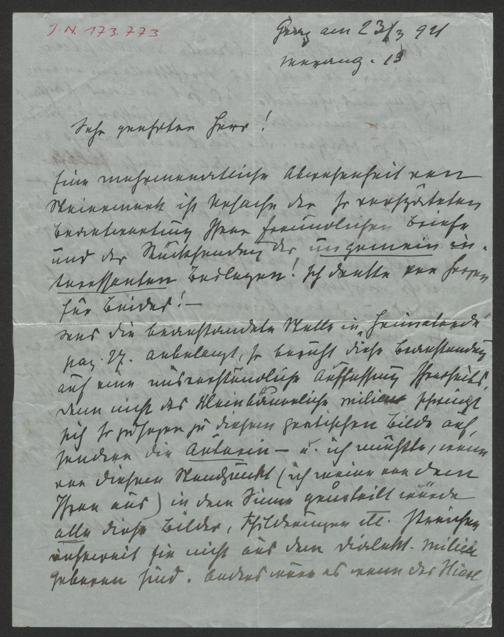 J.N. 173.773
Graz am 23/3 921
Sehr geehrter Herr!
Eine mehrmonatliche Abwesenheit von
Steiermark ist Ursache der so verspäteten
Beantwortung Ihrer freundlichen Briefe
und der Rücksendung der ungemein in-
teressanten Beilagen! Ich danke von Herzen
für Beides! —
Was die beanstandete Stelle in „Heimaterde"
pag. 27. anbelangt, so beruht diese Beanstandung
auf eine missverständliche Auffassung Ihrerseits,
denn nicht das Kleinbäuerliche milieu schwingt
sich so zusagen zu diesem poetischen Bilde auf,
sondern die Autorin — u. ich müsste, wenn
von diesem Standpunkt (ich meine von dem
Ihren aus) in dem Sinne geurteilt würde
alle diese Bilder, Schilderungen etc. streichen
insoweit sie nicht aus dem Dialekt-Milieu
geboren sind. Anders wäre es wenn der